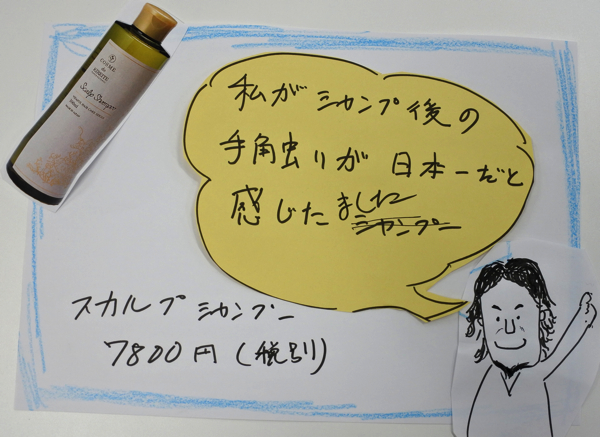 COSME
de
KIREI
Scalp Shampoo
私がシャンプ後の
手角虫りが日本一だと
感じたました
シャンプー
スカルプシャンプー
7800円(税別)